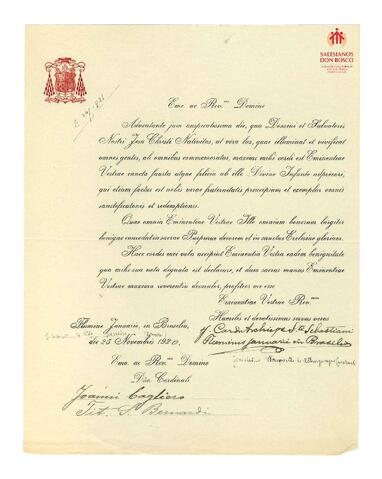 SALESIANOS
DON BOSCO
Eme. ac Rev.mo Domine
Adventante jam auspicatissima die, qua Domini et Salvatoris
Nostri Jesu Christi Nativitas, ut vera lux, quae illuminat et vivificat
omnes gentes, ab omnibus commemoratur, maxime mihi cordi est Eminentiae
Vestrae cuncta fausta atque felicia ab illo Divino Infante adprecari,
qui etiam factus est nobis verae fraternitatis principium et exemplar omnis
sanctificationis et redemptionis.
Quae omnia Eminentiae Vestrae Ille omnium bonorum largitor
benigne concedat in sacrae Purpurae decorem et in sanctae Ecclesiae gloriam.
Haec cordis mei vota accipiat Eminentia Vestra eadem benignitate
qua mihi sua nota dignata est declarare, et dum sacras manus Eminentiae
Vestrae maxima reverentia deosculor, profiteor me esse
Eminentiae Vestrae Rev.mae
Flumine Januario, in Brasilia,
die 25 Novembris 1920.
Humilis et devotissimus servus verus
J. Card. Archiep. S. Sebastiani
Fluminis Januarii in Brasilia
Eme. ac Rev.mo Domino
Dno. Cardinali
Joanni Cagliero
Tit. S. Bernardi